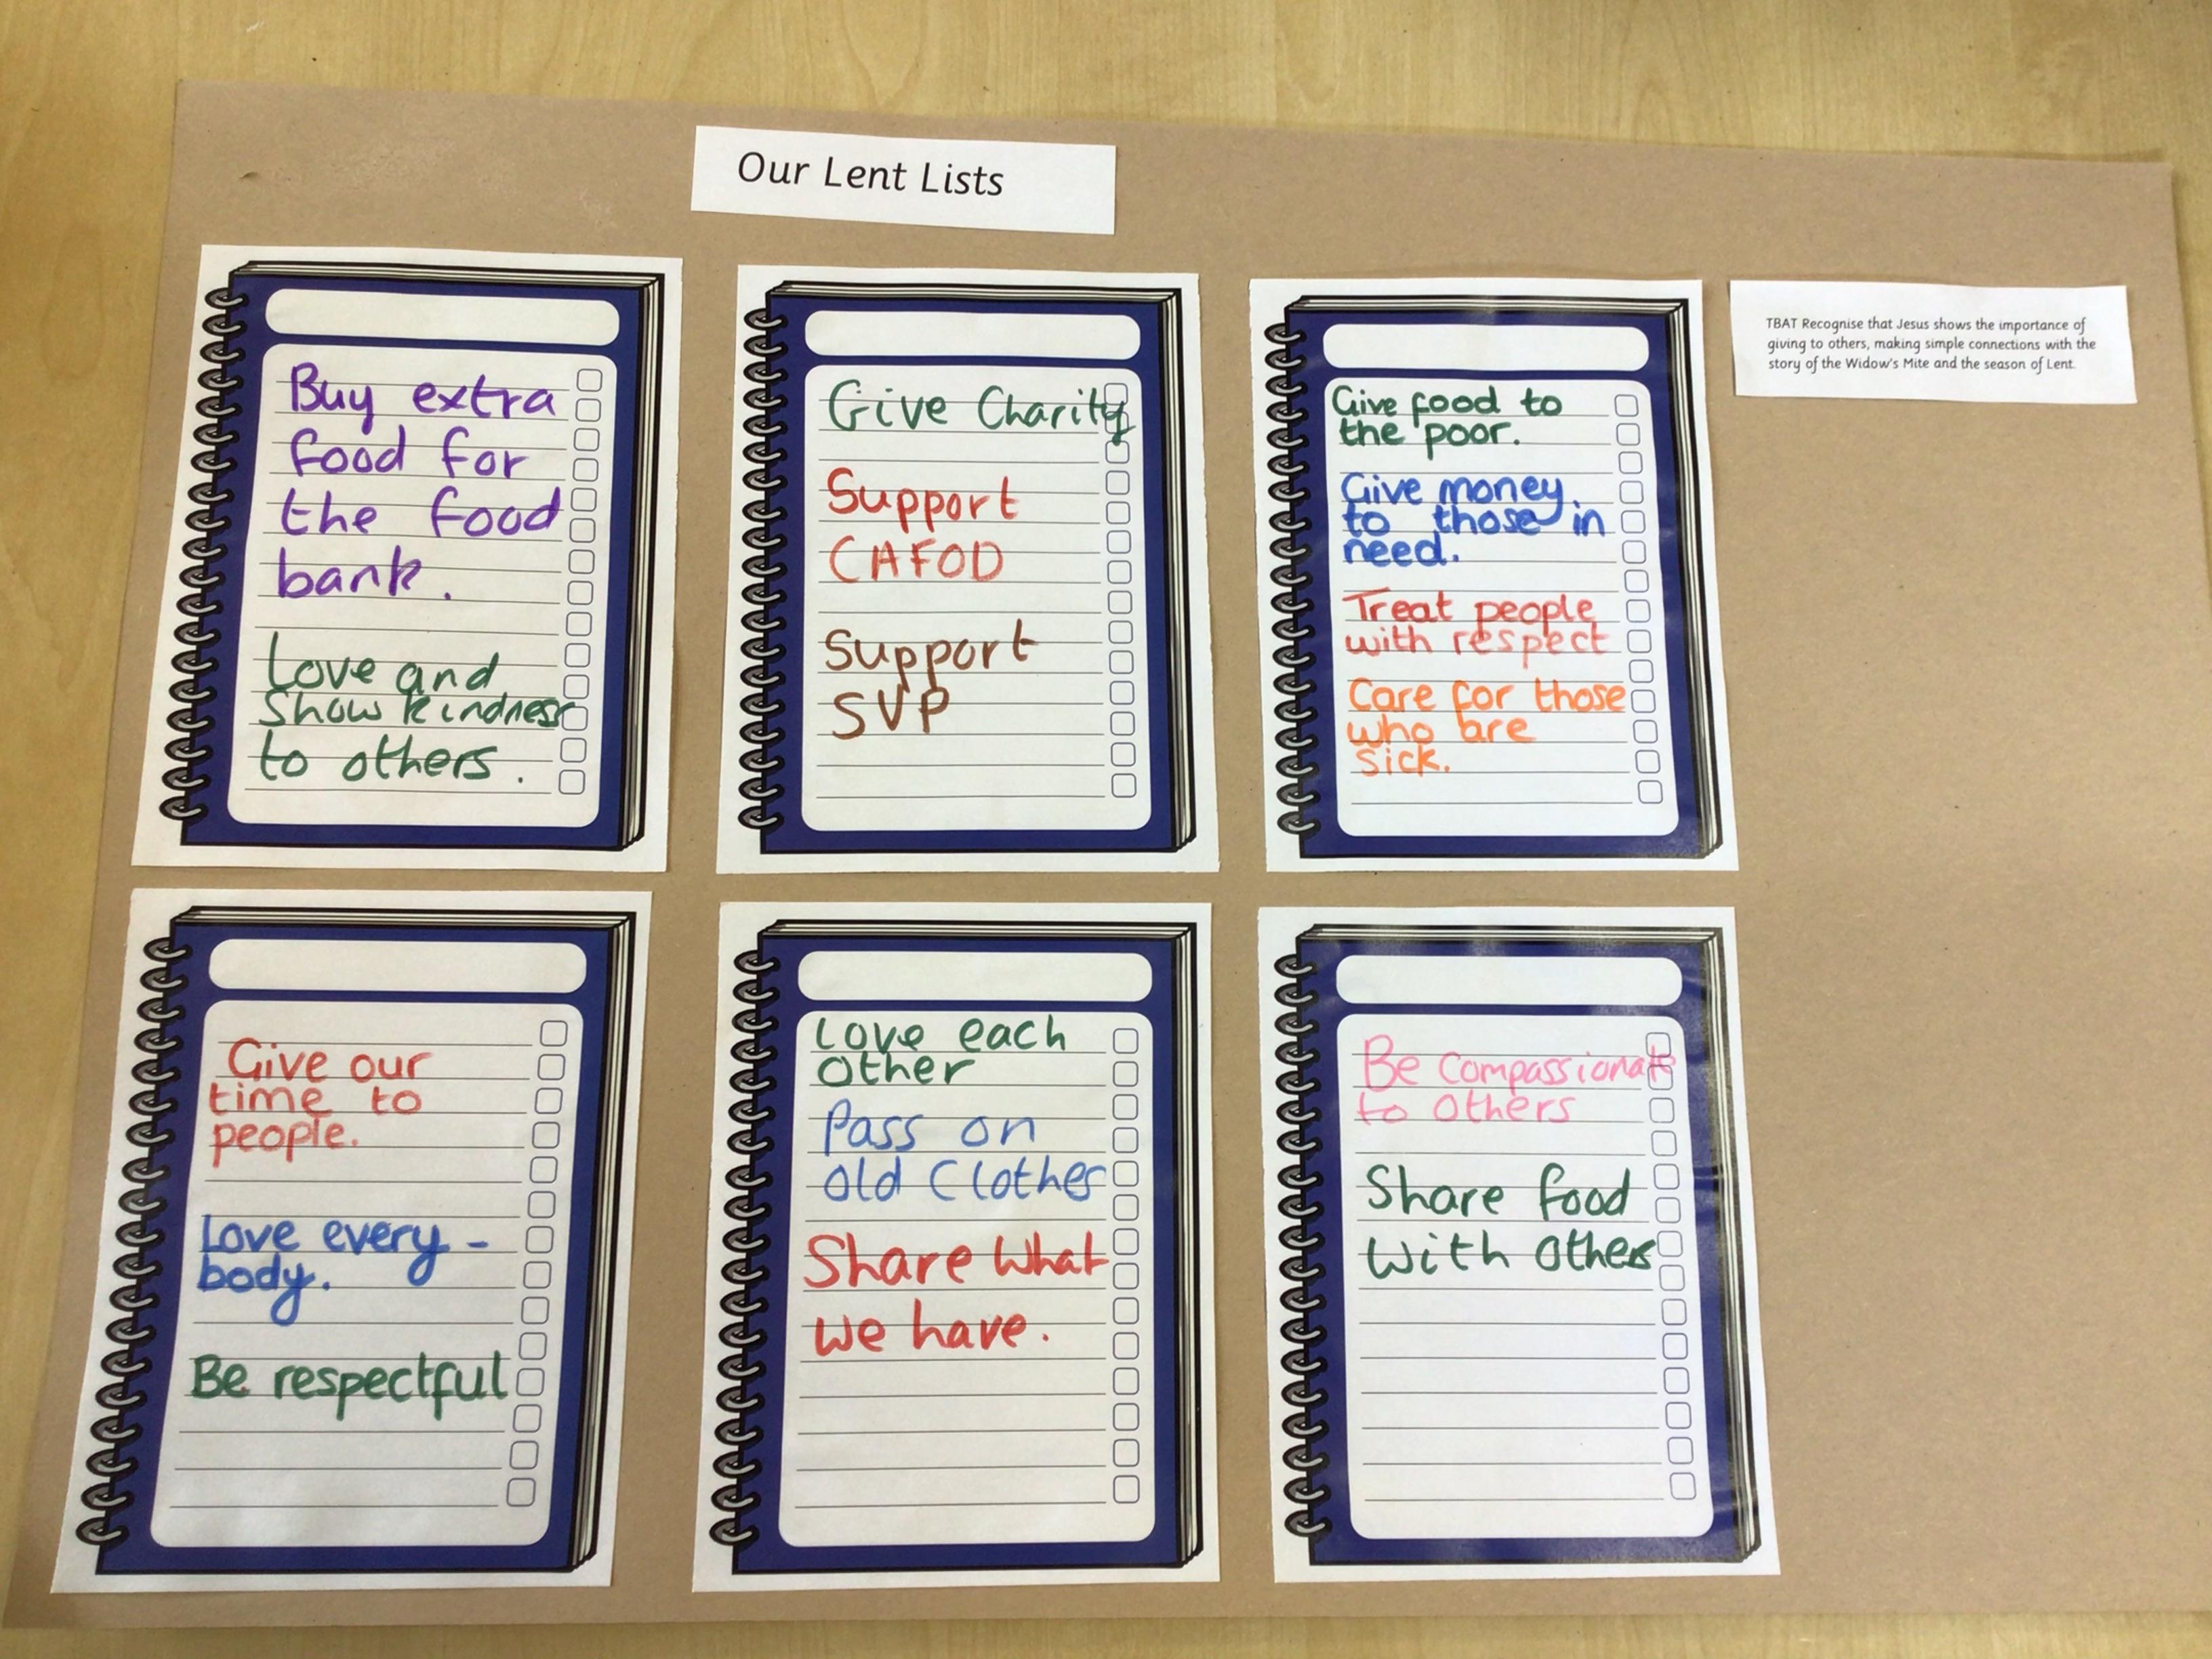 Our Lent Lists
Buy extra
food for
the food
bank.
Love and
Show kindness
to others.
Give Charity
Support
CAFOD
Support
SVP
Give food to
the poor.
Give money
to those in
need.
Treat people
with respect
Care for those
who are
sick.
TBAT Recognise that Jesus shows the importance of
giving to others, making simple connections with the
story of the Widow's Mite and the season of Lent.
Give our
time to
people.
Love every-
body.
Be respectful
Love each
other
Pass on
old Clothes
Share what
we have.
Be compassionate
to others
Share food
with others